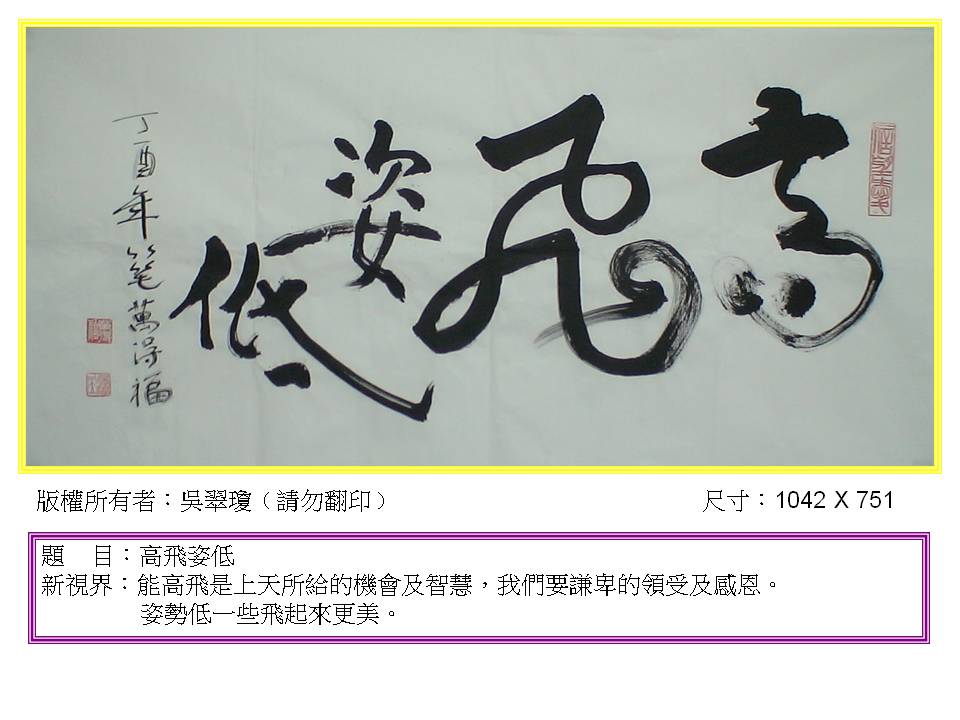 高飛姿低
丁酉年 筆 萬得福
版權所有者：吳翠瓊（請勿翻印）
尺寸：1042 X 751
題　目：高飛姿低
新視界：能高飛是上天所給的機會及智慧，我們要謙卑的領受及感恩。
姿勢低一些飛起來更美。